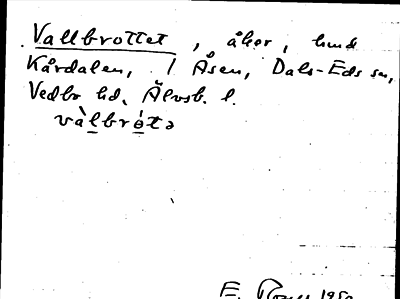 Vallbrottet, åker, hmd
Kårdalen, 1 Åsen, Dals-Eds sn,
Vedbo hd. Älvsb. l.
và̀lbrótə
E.